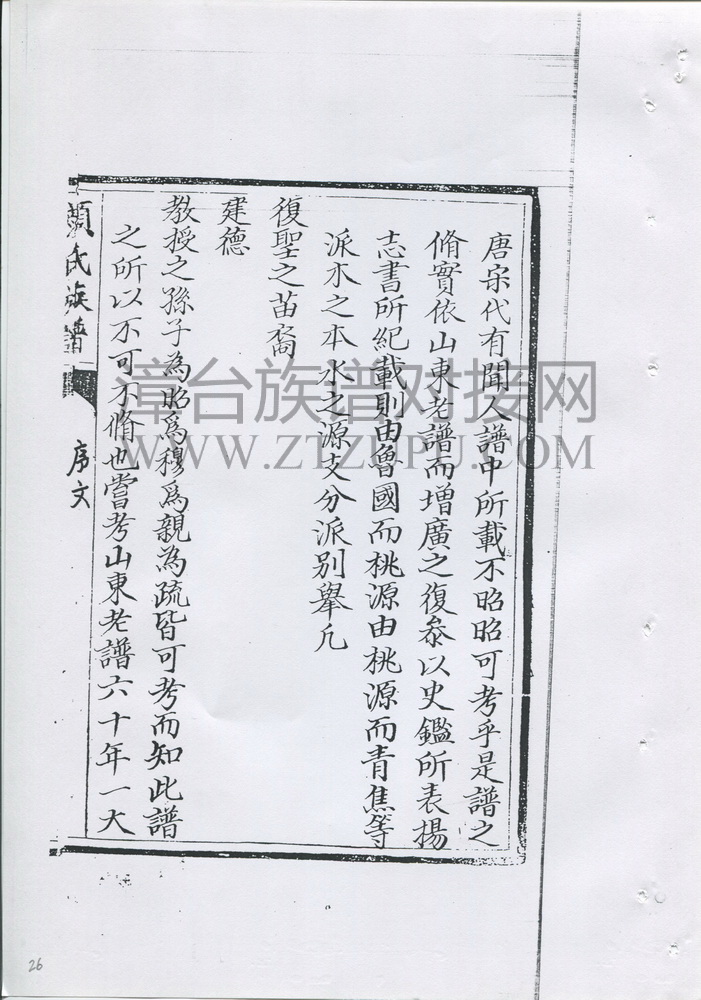 唐宋代有聞人譜中所載不昭昭可考乎是譜之
脩實依山東老譜而增廣之復叅以史鑑所表揚
志書所紀載則由魯國而桃源由桃源而青焦等
派木之本水之源支分派别舉凢
復聖之苗裔
建德
教授之孫子為昭為穆為親為疏皆可考而知此譜
之所以不可不脩也嘗考山東老譜六十年一大
顏氏族譜
序文
漳台族谱对接网
WWW.ZTZUPU.COM
26